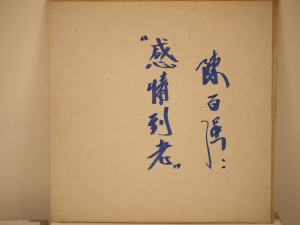 陳百強：
"感情到老"